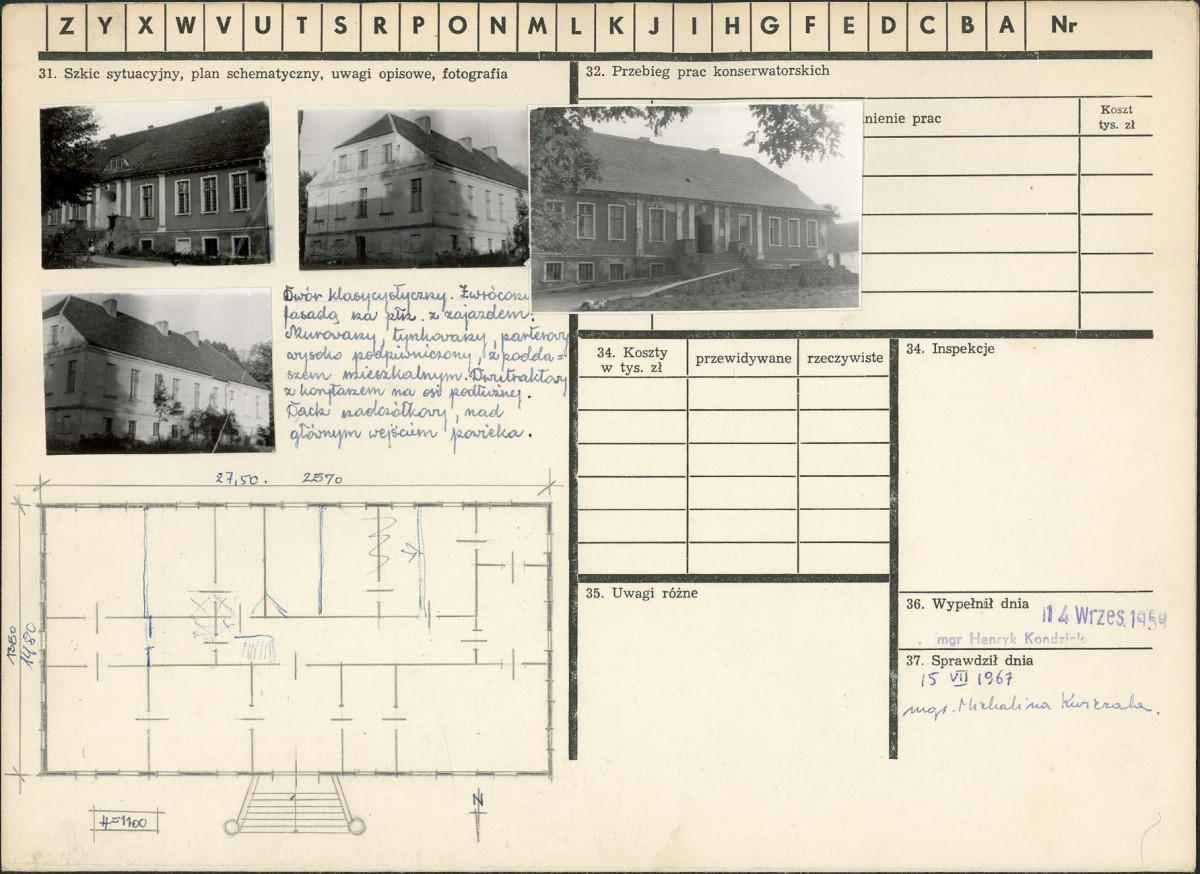 Z Y X W V U T S R P O N M L K J I H G F E D C B A Nr
31. Szkic sytuacyjny, plan schematyczny, uwagi opisowe, fotografia
Dwór klasycystyczny. Zwrócony
fasadą na płd. z zajazdem.
Murowany, tynkowany, parterowy
wysoko podpiwniczony, z podda=
szem mieszkalnym. Dwutraktowy
z korytarzem na osi podłużnej.
Dach naczółkowy, nad
głównym wejściem powieka.
27,50. 2570
1380
1480
H=1100
N
32. Przebieg prac konserwatorskich
nienie prac
Koszt
tys. zł
34. Koszty
w tys. zł
przewidywane
rzeczywiste
34. Inspekcje
35. Uwagi różne
36. Wypełnił dnia
14 Wrzes. 1959
mgr Henryk Kondziela
37. Sprawdził dnia
15 VII 1967
mgr. Michalina